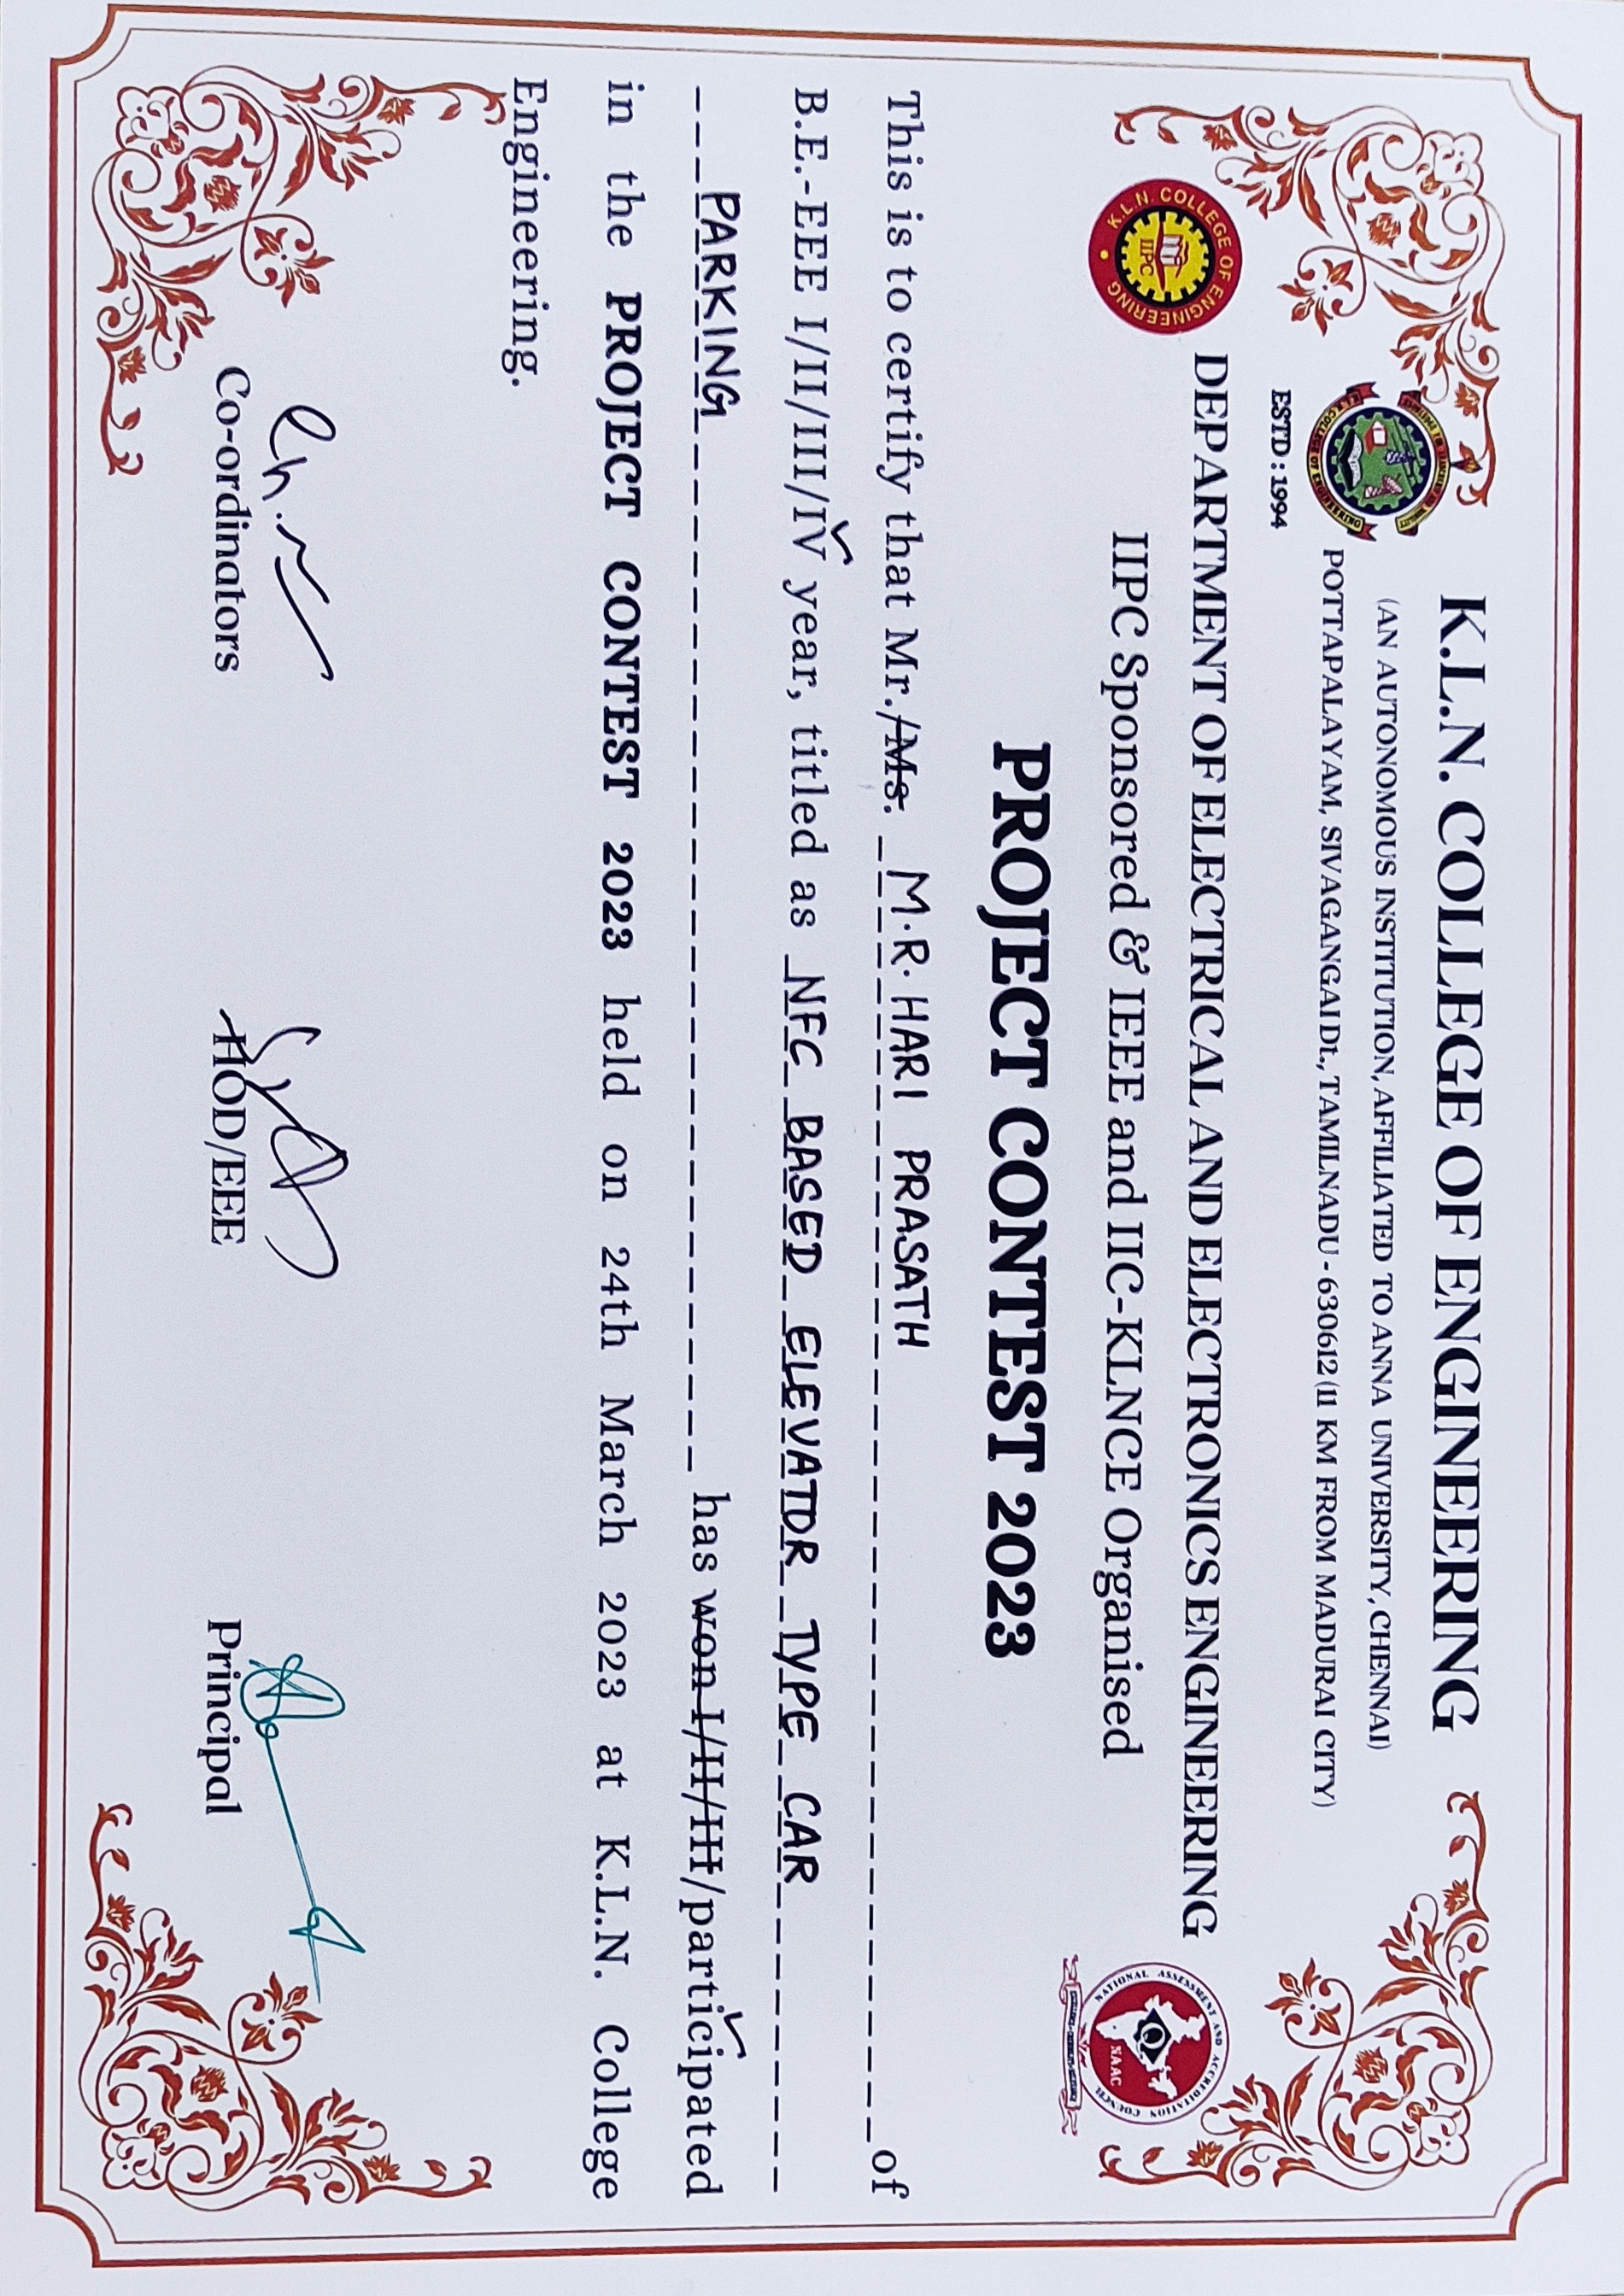 K.L.N. COLLEGE OF ENGINEERING
(AN AUTONOMOUS INSTITUTION, AFFILIATED TO ANNA UNIVERSITY, CHENNAI)
POTTAPALAYAM, SIVAGANGAI Dt., TAMILNADU - 630612 (11 KM FROM MADURAI CITY)
ESTD : 1994
K.L.N. COLLEGE OF ENGINEERING
IIPC
DEPARTMENT OF ELECTRICAL AND ELECTRONICS ENGINEERING
IIPC Sponsored & IEEE and IIC-KLNCE Organised
NATIONAL ASSESSMENT AND ACCREDITATION COUNCIL
NAAC
PROJECT CONTEST 2023
This is to certify that Mr./Ms. M.R.HARI PRASATH of
B.E.-EEE I/II/III/IV year, titled as NFC BASED ELEVATOR TYPE CAR
PARKING has won I/II/III/participated
in the PROJECT CONTEST 2023 held on 24th March 2023 at K.L.N. College
Engineering.
Co-ordinators
HOD/EEE
Principal